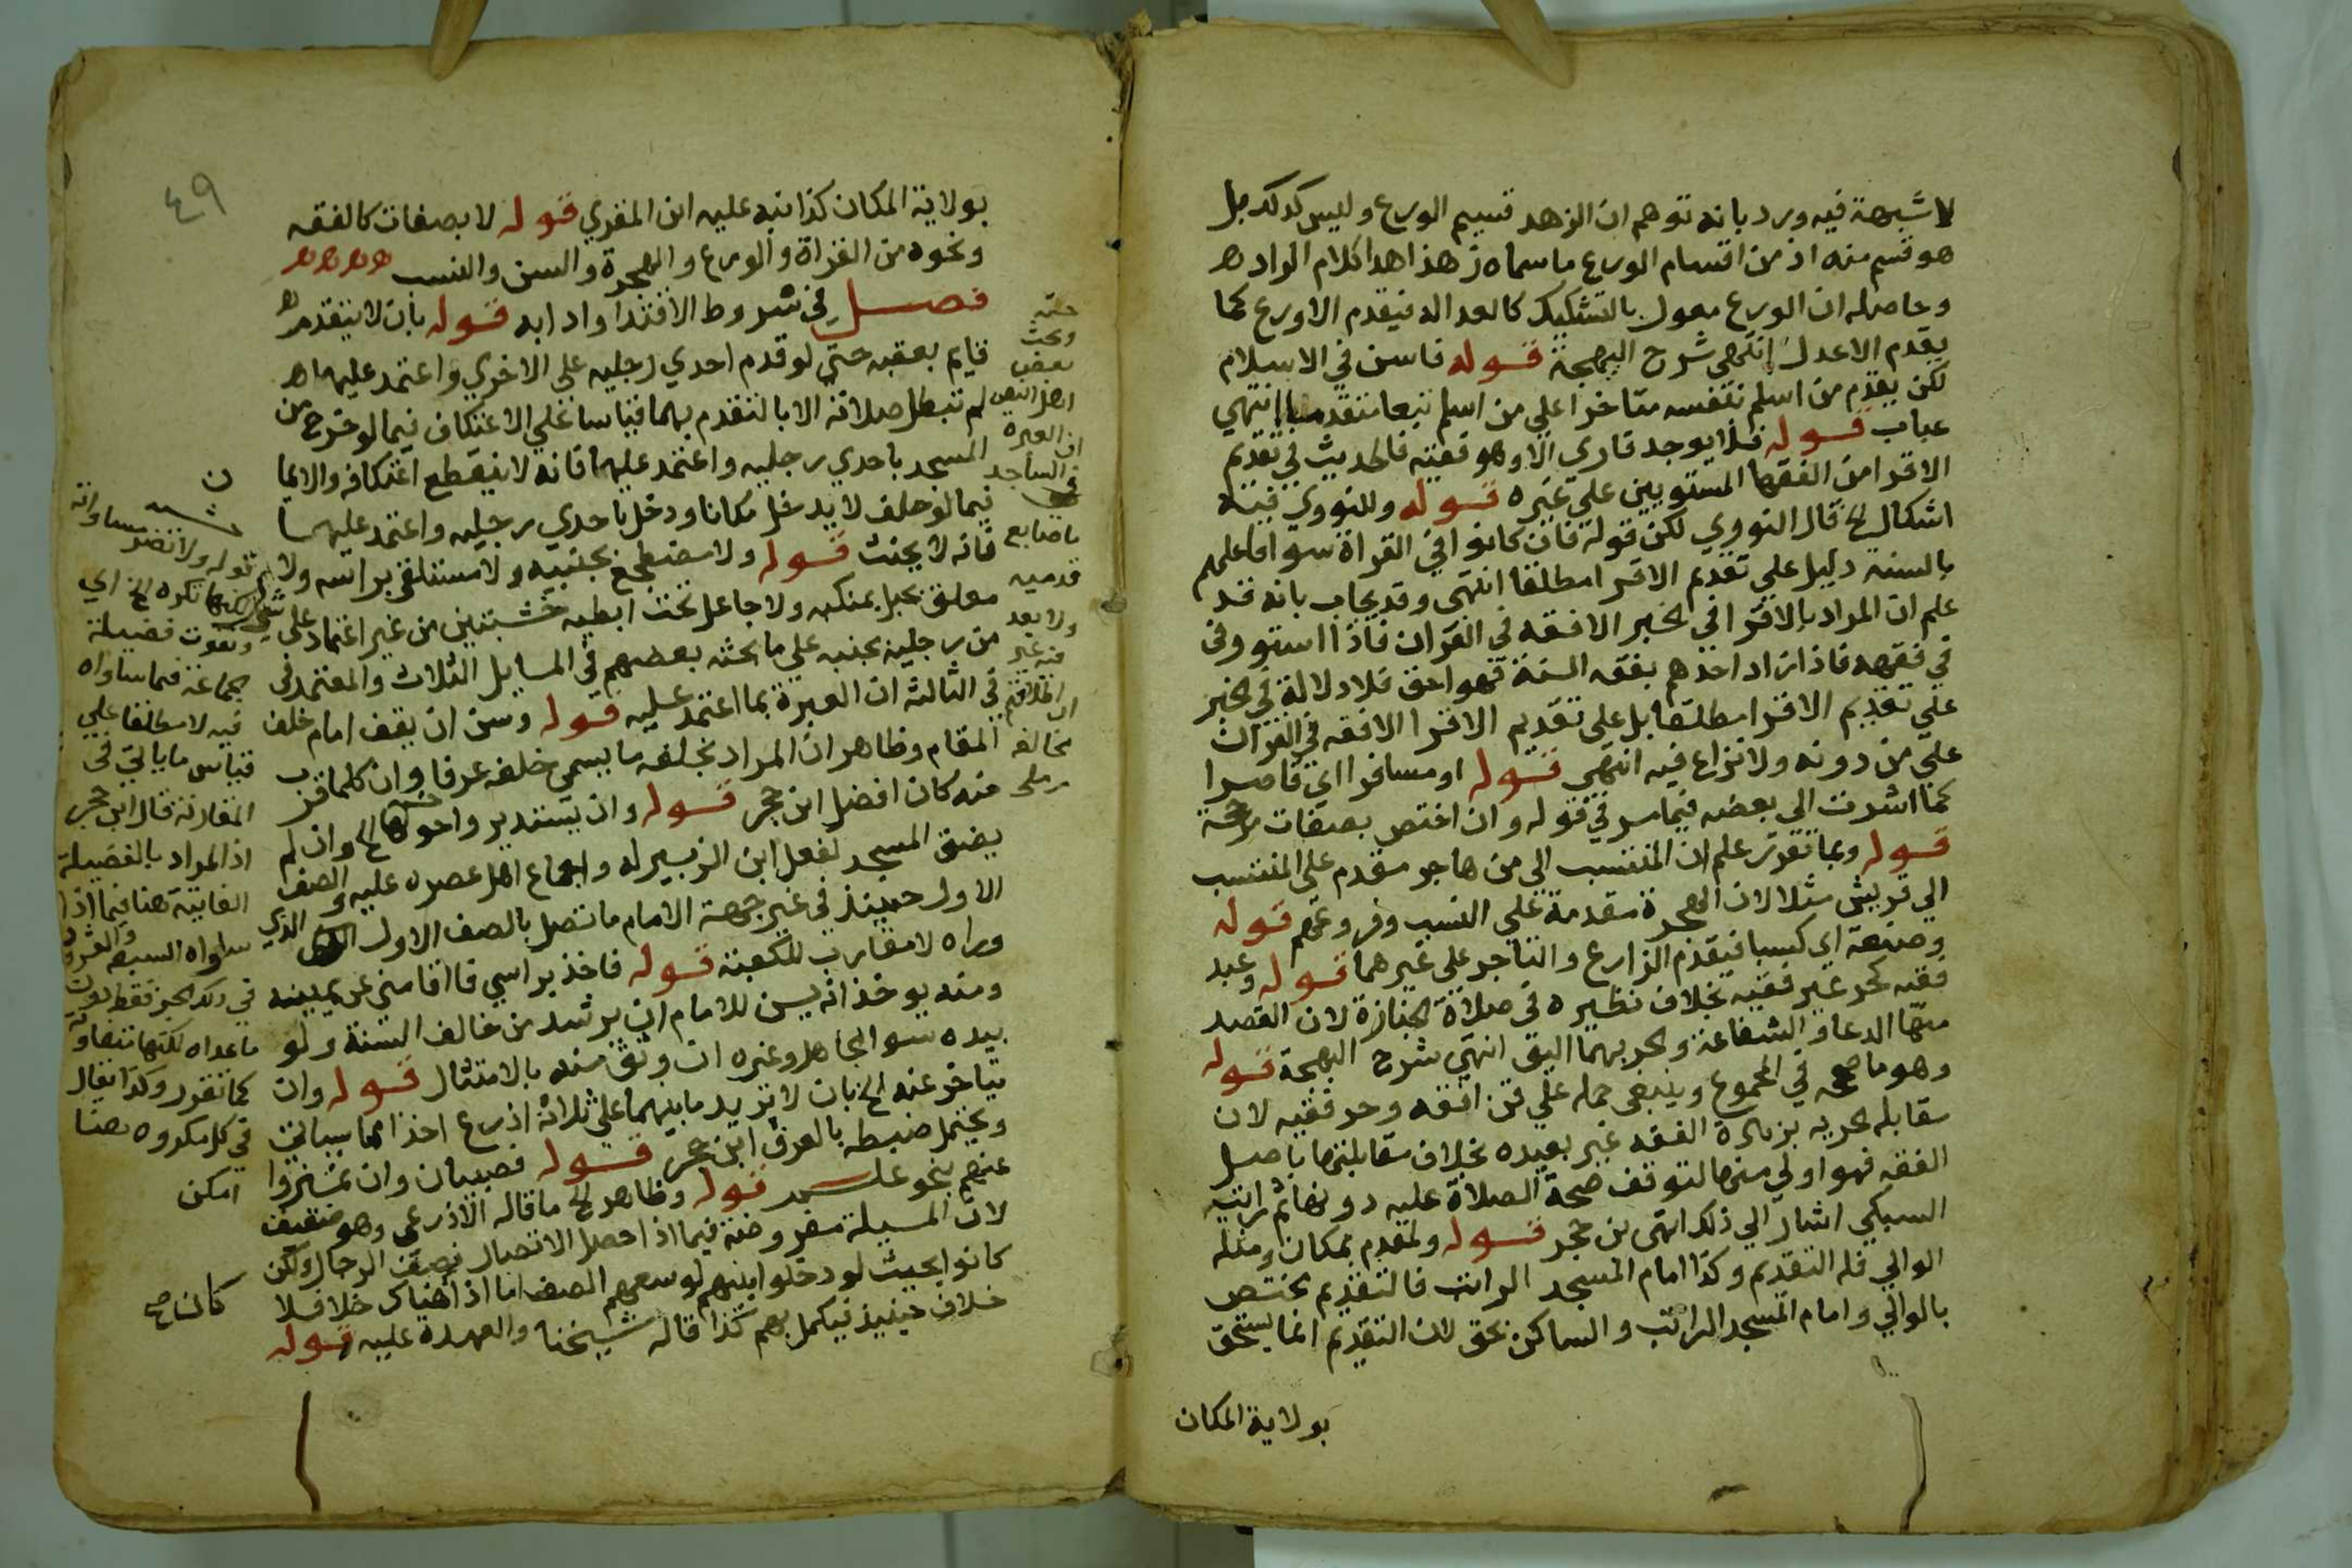 لا شبهة فيه ورد بانه توهم ان الزهد قسيم الورع وليس كذلك بل
هو قسم منه اذ من اقسام الورع ما سماه زهذا هدا كلام الواد ه
وحاصله ان الورع مقول بالتشكيك كالعداله فيقدم الاورع كما
يقدم الاعدل انتهى شرح البهجة قوله فاسن في الاسلام
لكن يقدم من اسلم بنفسه متاخرا علي من اسلم تبعا متقدما انتهي
عباب قوله فلا يوجد قاري الا وهو فقيه فالحديث في تقديم
الاقرا من الفقها المستويين علي غيره قوله وللنووي فيه
اشكال الخ قال النووي لكن قوله فان كانوا في القراة سوا فاعلمهم
بالسنه دليل علي تقديم الاقرا مطلقا انتهى وقد يجاب بانه قد
علم ان المراد بالاقرا في الخبر الافقه في القران فاذا استووا في
في فقهه فاذا زاد احدهم بفقه السنة فهو احق فلا دلالة في الخبر
علي تقديم الاقرا مطلقا بل على تقديم الاقرا الافقه في القران
علي من دونه ولا نزاع فيه انتهي قوله او مسافرا اي قاصرا
كما اشرت الى بعضه فيما مر في قوله وان اختص بصفات مرجحة
قوله وبما تقرر علم ان المنتسب الى من هاجر مقدم على المنتسب
الي قريش مثلا لان الهجرة مقدمة علي النسب وفروعهم قوله
وصنعة اي كسبا فيقدم الزارع والتاجر على غيرهما قوله وعبد
فقيه كحر غير فقيه بخلاف نظيره في صلاة الجنازة لان القصد
منها الدعا والشفاعة والحر بهما اليق انتهي شرح البهجة قوله
وهو ما صححه في المجموع وينبغي حمله علي قن افقه وحر فقيه لان
مقابلة الحريه بزيادة الفقه غير بعيده بخلاف مقابلتها باصل
الفقه فهو اولي منها لتوقف صحة الصلاة عليه دونها ثم رايت
السبكي اشار الي ذلك انتهى بن حجر قوله ولمقدم بمكان ومثله
الوالي فله التقديم وكذا امام المسجد الراتب فالتقديم يختص
بالوالي وامام المسجد الراتب والساكن بحق لان التقديم انما يستحق
بولاية المكان
٤٩
بولاية المكان كذا نبه عليه ابن المقري قوله لا بصفات كالفقه
ونحوه من القراة والورع والهجرة والسن والنسب ه ه ه ه
فصل في شروط الاقتدا وادابه قوله بان لا يتقدم
قايم بعقبه حتي لو قدم احدي رجليه علي الاخري واعتمد عليهما
لم تبطل صلاته الا بالتقدم بهما قياسا علي الاعتكاف فيما لو خرج من
المسجد باحدي رجليه واعتمد عليهما فانه لا ينقطع اعتكافه والايمان
فيما لو حلف لا يدخل مكانا ودخل باحدي رجليه واعتمد عليهما
فانه لا يحنث قوله ولا مضطجع بجنبيه ولا مستلقي براسه ولا
معلق بحبل بمنكبه ولا جاعل تحت ابطيه خشبتين من غير اعتماد علي شي
من رجليه بجنبه علي ما بحثه بعضهم في المسايل الثلاث والمعتمد في
في الثالثة ان العبرة بما اعتمد عليه قوله وسن ان يقف امام خلف
المقام وظاهر ان المراد بخلفه ما يسمى خلفه عرفا وان كلما قرب
منه كان افضل ابن حجر قوله وان يستديروا حولها الخ وان لم
يضق المسجد لفعل ابن الزبير له واجماع اهل عصره عليه والصف
الاول حينيذ في غير جهة الامام ما تصل بالصف الاول الذي
وراه لا مقارب للكعبة قوله فاخذ براسي فاقامني عن يمينه
ومنه يوخذ انه يسن للامام ان يرشد من خالف السنة ولو
بيده سوا الجاهل وغيره ان وثق منه بالامتثال قوله وان
يتاخر عنه الخ بان لا يزيد ما بينهما على ثلاثة اذرع اخذا مما سياتي
ويحتمل ضبطه بالعرف ابن حجر قوله فصبيان وان تميزوا
عنهم بنحو علم قوله وظاهر الخ ما قاله الاذرعي وهو ضعيف
لان المسيلة مفروضة فيما اذا حصل الاتصال بصف الرجال ولكن
كانوا بحيث لو دخلوا بينهم لوسعهم الصف اما اذا هناك خلا فلا
خلاف حينيذ فيكمل بهم كذا قاله شيخنا والعهدة عليه قوله
وبحث
بعض
اهل اليمن
ان العبره
في الساجد
باصابع
قدميه
ولا بعد
فيه غير
ان
مخالفه
رملى
قوله ولا تضر مساواته
لكنها تكره الخ اي
وتفوت فضيلة
الجماعة فيما ساواه
فيه لا مطلقا علي
قياس ما ياتي في
المقارنة قال ابن حجر
اذ المراد بالفضيلة
الفايتة هنا فيما اذا
ساواه السبعه والعشرون
في ذلك الجز فقط دون
ما عداه
كما تقرر وكذا يقال
في كل مكروه هنا
امكن